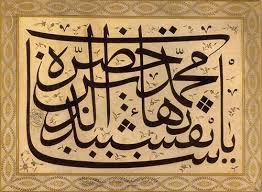 يا حضرة محمد بهاء الدين نقشبند